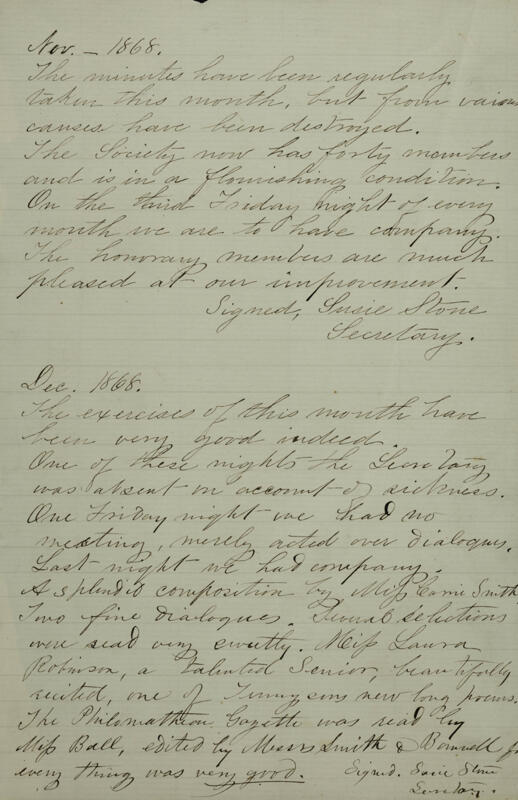 Nov. – 1868.
The minutes have been regularly
taken this month, but from vaious
causes have been destroyed.
The Society now has forty members
and is in a flourishing condition.
On the third Friday night of every
month we are to have company.
The honorary members are much
pleased at our improvement.
Signed, Susie Stone
Secretary.
Dec. 1868.
The exercises of this month have
been very good indeed.
One of these nights the Secretary
was absent on account of sickness.
One Friday night we had no
meeting, merely acted over dialogues.
Last night we had company.
A splendid composition by Miss Carrie Smith
Two fine dialogues. Several selections
were read very sweetly. Miss Laura
Robinson, a talented Senior, beautifully
recited, one of Tennysons new long poems.
The Philomathean Gazette was read by
Miss Ball, edited by Messrs Smith &
every thing was very good. Signed. Susie Stone
Secretary.